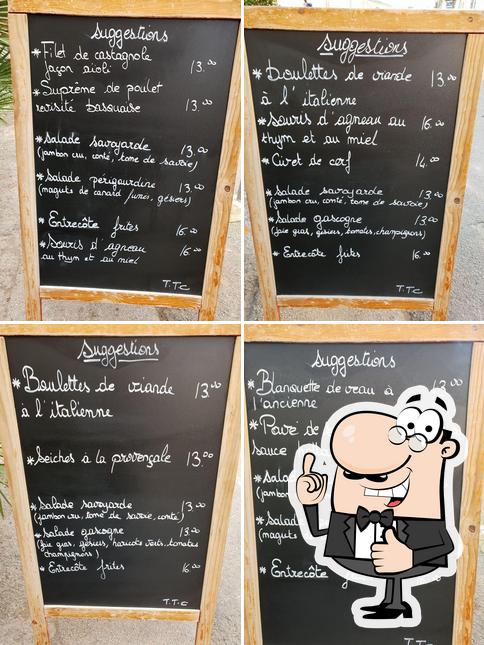 Suggestions
* Filet de castagnole
façon aioli 13.00
* Suprême de poulet
revisité basquaise 13.00
* Salade savoyarde 13.00
(jambon cru, comté, tome de savoie)
* Salade périgourdine 13.00
(magrets de canard fumés, gésiers)
* Entrecôte frites 16.00
* Souris d'agneau 16.00
au thym et au miel
T.T.C
Suggestions
* Boulettes de viande 13.00
à l'italienne
* Souris d'agneau au 16.00
thym et au miel
* Civet de cerf 14.00
* Salade savoyarde 13.00
(jambon cru, comté, tome de savoie)
* Salade gascogne 13.00
(foie gras, gésiers, tomates, champignons)
* Entrecôte frites 16.00
T.T.C
Suggestions
* Boulettes de viande 13.00
à l'italienne
* Seiches à la provençale 13.00
* Salade savoyarde 13.00
(jambon cru, tome de savoie, comté)
* Salade gascogne 13.00
(foie gras, gésiers, haricots verts, tomates
champignons)
* Entrecôte frites 16.00
T.T.C
Suggestions
* Blanquette de veau à 13.00
l'ancienne
* Pavé de
sauce
* Salad
(jambon
* Salad
(magrets
* Entrecôte
T.T.C